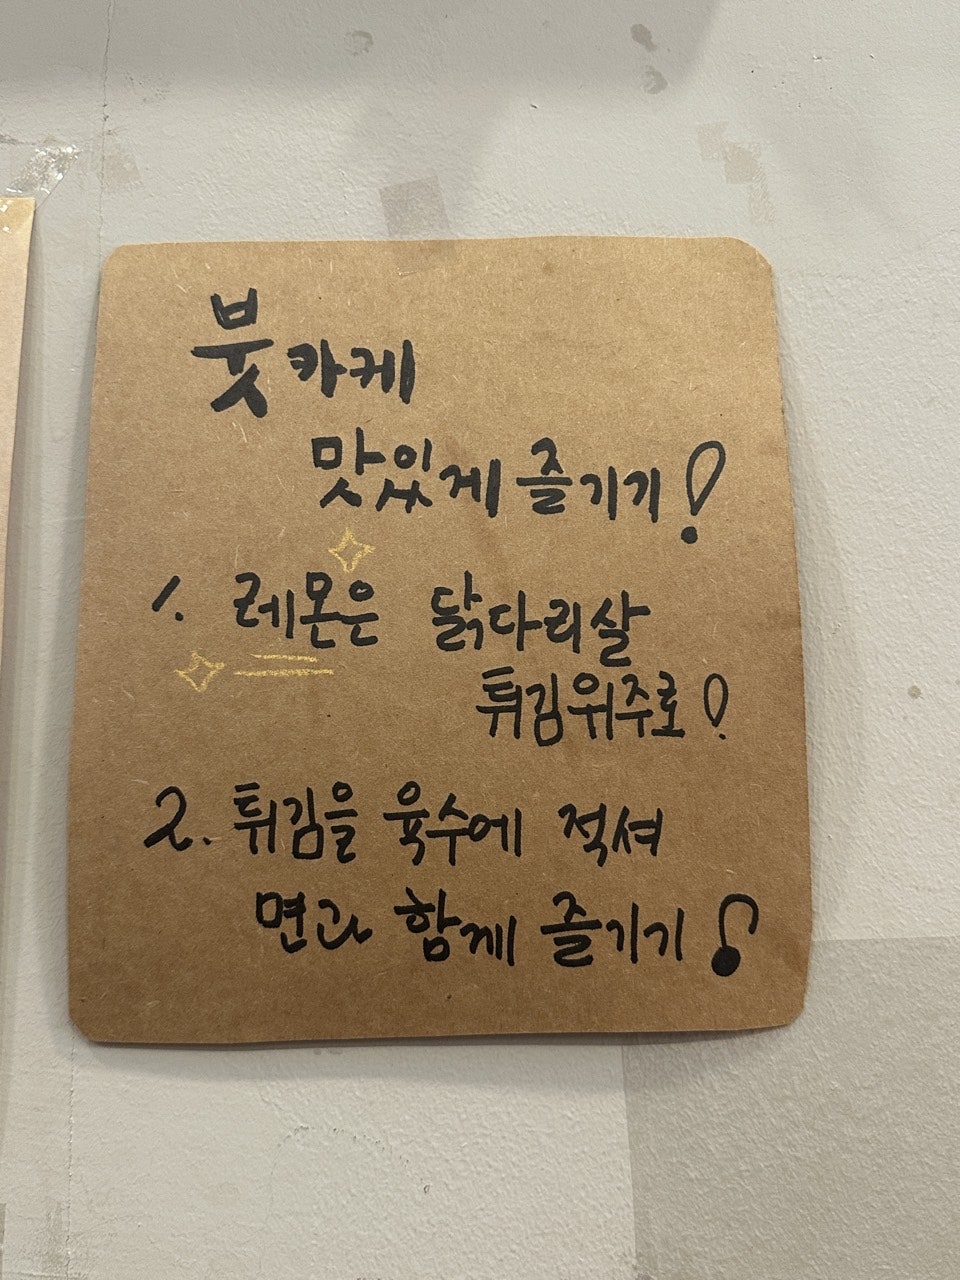 붓카케
맛있게 즐기기!
1. 레몬은 닭다리살
튀김위주로!
2. 튀김을 육수에 적셔
면과 함께 즐기기♪